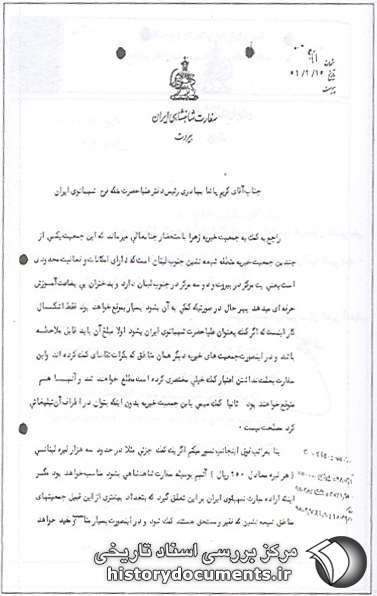 شماره
تاریخ ۵۶/۲/۱۵
پیوست
سفارت شاهنشاهی ایران
بیروت
جناب آقای کریم پاشا بهادری رئیس دفتر علیاحضرت ملکه فرح شهبانوی ایران
راجع به کمک به جمعیت خیریه زهرا باستحضار جنابعالی میرساند که این جمعیت یکی از
چندین جمعیت خیریه منطقه شیعه نشین جنوب لبنان است که دارای امکانات و فعالیت محدودی
است یعنی یک مرکز در بیروت و دو سه مرکز در جنوب لبنان دارد و بدختران بی بضاعت آموزش
حرفه ای میدهد بهر حال در صورتیکه کمکی به آن بشود بسیار بموقع خواهد بود فقط اشکال
کار اینست که اگر کمک بعنوان علیاحضرت شهبانوی ایران بشود اولا مبلغ آن باید قابل ملاحظه
باشد و در اینصورت جمعیت های خیریه دیگر همان مناطق که بکرات تقاضای کمک کرده اند و این
سفارت بعلت نداشتن اعتبار کمک خیلی مختصری کرده است مطلع خواهند شد و آنها هم
متوقع خواهند بود ثانیا کمک مبهمی باین جمعیت خیریه بدون اینکه بتوان در اطراف آن تبلیغاتی
کرد مصلحت نیست
بنا بمراتب فوق اینجانب تصور میکنم اگر یک کمک جزئی مثلا در حدود سه هزار لیره لبنانی
( هر لیره معادل ۲۵۰ ریال ) آنهم بوسیله سفارت شاهنشاهی بشود مناسب خواهد بود مگر
اینکه اراده مبارک شهبانوی ایران بر این تعلق گیرد که بتعداد بیشتری از این قبیل جمعیتهای
مناطق شیعه نشین که فقیر و مستحق هستند کمک شود و در اینصورت بسیار مناسب و مفید خواهد
مرکز بررسی اسناد تاریخی
historydocuments.ir